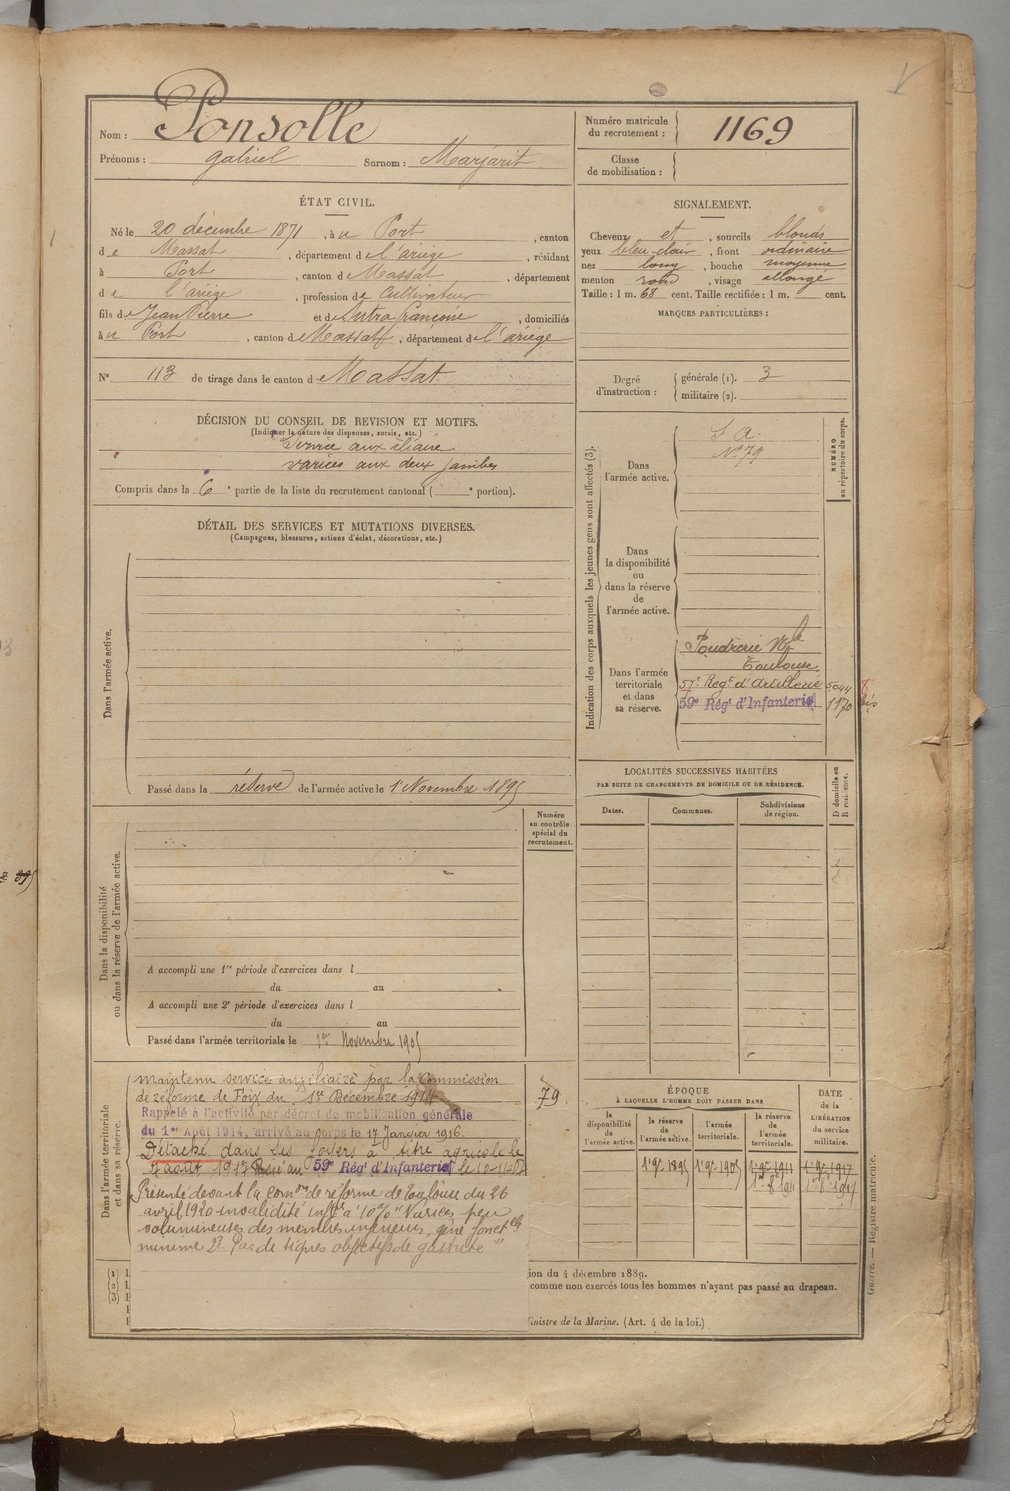 Nom : Ponsolle
Prénoms : gabriel Surnom : Marjarit
Numéro matricule du recrutement : 1169
Classe de mobilisation :
ÉTAT CIVIL.
Né le 20 décembre 1871, à u Port, canton
d e Massat, département d e l'ariège, résidant
à Port, canton d e Massat, département
d e l'ariège, profession de Cultivateur
fils de Jean Pierre et de Sutra françoise, domiciliés
à u Port, canton de Massat, département de l'ariège
N° 113 de tirage dans le canton de Massat.
SIGNALEMENT.
Cheveux et, sourcils blonds
yeux bleu-clair, front ordinaire
nez long, bouche moyenne
menton rond, visage allongé
Taille : 1 m. 68 cent. Taille rectifiée : 1 m. cent.
MARQUES PARTICULIÈRES :
Degré d'instruction : générale (1). 3
militaire (2).
DÉCISION DU CONSEIL DE REVISION ET MOTIFS.
(Indiquer la nature des dispenses, sursis, etc.)
Service auxiliaire
varices aux deux jambes
Compris dans la 6e partie de la liste du recrutement cantonal ( e portion).
DÉTAIL DES SERVICES ET MUTATIONS DIVERSES.
(Campagnes, blessures, actions d'éclat, décorations, etc.)
Dans l'armée active.
Passé dans la réserve de l'armée active le 1er Novembre 1895
Indication des corps auxquels les jeunes gens sont affectés (3).
NUMÉRO au répertoire du corps.
Dans l'armée active.
S. A.
N° 79
Dans la disponibilité ou dans la réserve de l'armée active.
Dans l'armée territoriale et dans sa réserve.
Poudrerie Nle
Toulouse
57e Regt d'Artillerie 5044 8
59e Régt d'Infanterie 1170 bis
LOCALITÉS SUCCESSIVES HABITÉES
PAR SUITE DE CHANGEMENTS DE DOMICILE OU DE RÉSIDENCE.
Dates. Communes. Subdivisions de région. D domicile ou R résidence.
Numéro au contrôle spécial du recrutement.
Dans la disponibilité ou dans la réserve de l'armée active.
A accompli une 1re période d'exercices dans l
du au
A accompli une 2e période d'exercices dans l
du au
Passé dans l'armée territoriale le 1er Novembre 1905
Dans l'armée territoriale et dans sa réserve.
maintenu service auxiliaire par la Commission
de réforme de Foix du 1er Décembre 1914
79.
Rappelé à l'activité par décret de mobilisation générale
du 1er Août 1914, arrivé au Corps le 17 Janvier 1916.
Détaché dans ses foyers à titre agricole le
août 1917 Passé au 59e Régt d'Infanterie le
Présenté devant la Comon de réforme de Toulouse du 26
avril 1920 invalidité infre à 10% "Varices peu
volumineuses des membres inférieurs, gêne fonctelle
minime 2° Pas de signes objectifs de gastrite"
ÉPOQUE
À LAQUELLE L'HOMME DOIT PASSER DANS
la disponibilité de l'armée active. la réserve de l'armée active. l'armée territoriale. la réserve de l'armée territoriale.
DATE de la LIBÉRATION du service militaire.
1er 9bre 1895 1er 9bre 1905 1er 9bre 1911 1er 9bre 1917
1er 8 1911 1er 8 1917
(1) I
(2) I
(3) I
ion du 4 décembre 1889.
comme non exercés tous les hommes n'ayant pas passé au drapeau.
inistre de la Marine. (Art. 4 de la loi.)
Guerre. — Registre matricule.